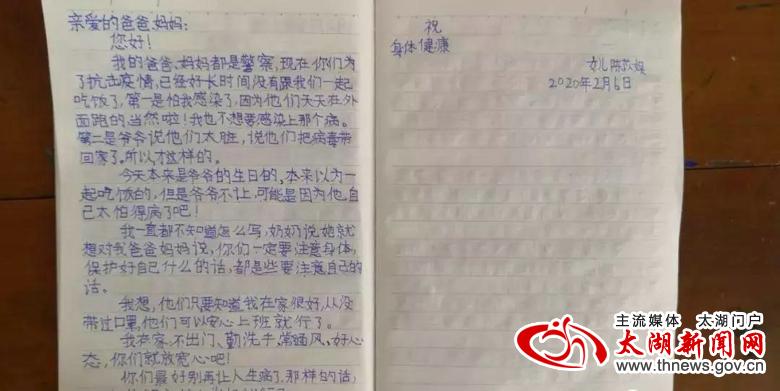 亲爱的爸爸、妈妈:
您好!
我的爸爸、妈妈都是警察,现在你们为
了抗击疫情,已经好长时间没有跟我们一起
吃饭了,第一是怕我感染了,因为他们天天在外
面跑的,当然啦!我也不想要感染上那个病。
第二是爷爷说他们太脏,说他们把病毒带
回家了,所以才这样的。
今天本来是爷爷的生日的,本来以为一
起吃饭的,但是爷爷不让,可能是因为他自
己太怕得病了吧!
我一直都不知道怎么写,奶奶说她就
想对我爸爸妈妈说,你们一定要注意身体,
保护好自己什么的话,都是些要注意自己的
话。
我想,他们只要知道我在家很好,从没
带过口罩,他们可以安心上班就行了。
我在家,不出门、勤洗手、常通风、好心
态,你们就放宽心吧!
你们最好别再让人生病了,那样的话,
祝
身体健康
女儿陈苏
2020年2月6日
主流媒体 太湖门户
太湖新闻网
www.thnews.gov.cn